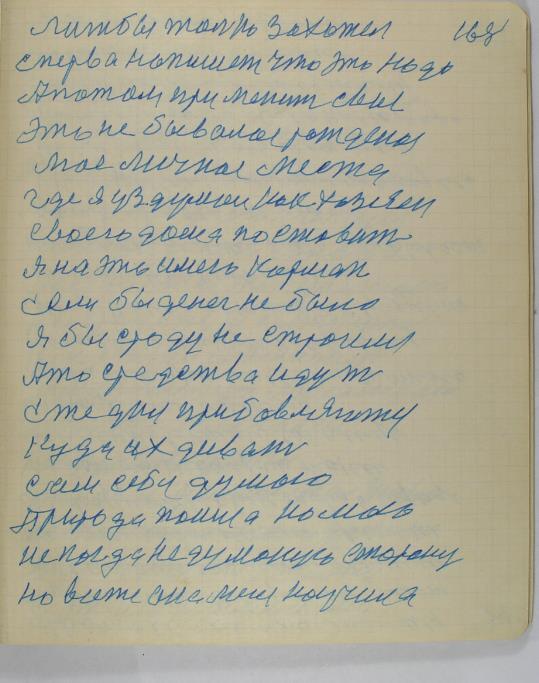 лишбы только захотел 168
сперва напишет что это надо
А потом применит свое
Это не бывалое рождения
мое личное места
где я уздумал как хозяин
своего дома поставить
Я на это имею карман
если бы денег не было
я бы сроду не строил
А то средства идут
куда их девать
сам себе думаю
Природа пошла на мою
некогда не думаную сторону
но все же она меня научила